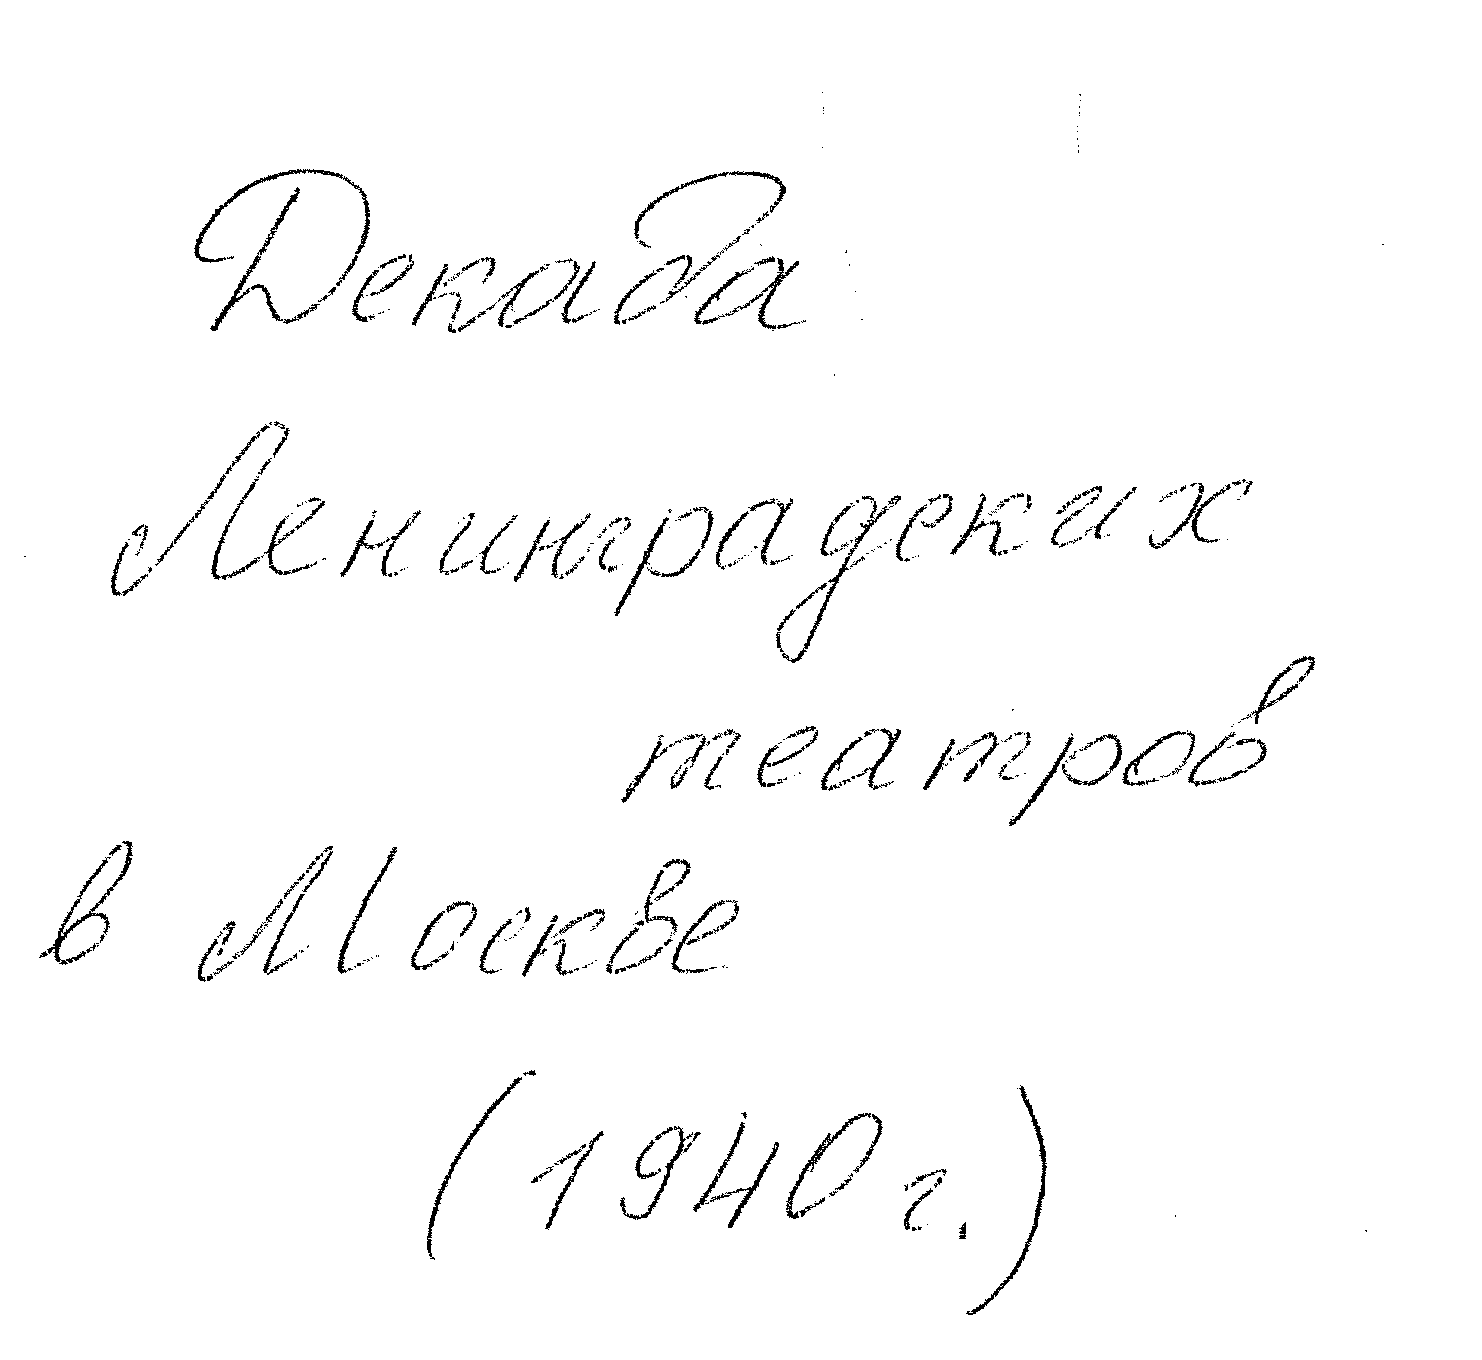 Декада
Ленинградских
театров
в Москве
(1940 г.)